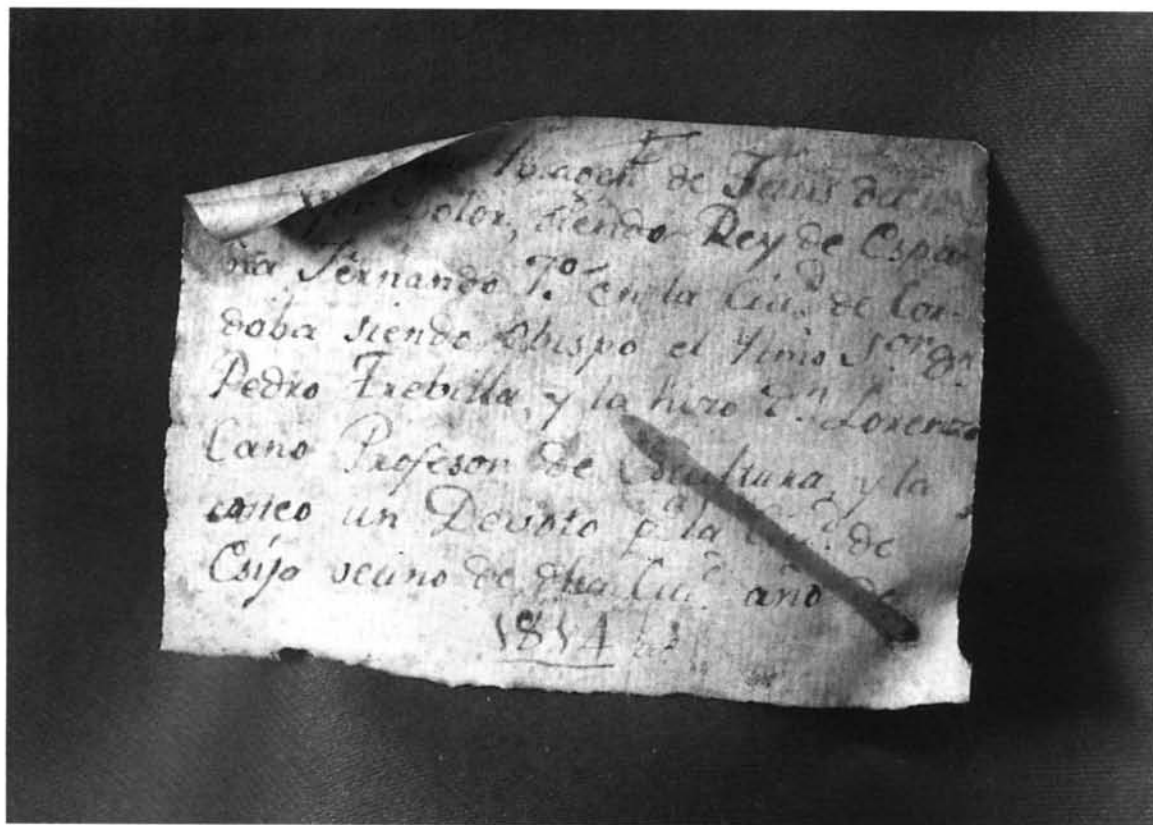 Imagen de Jesus del
yor Dolor, siendo Rey de Espa-
ña Fernando 7º en la Ciu.d de Cor-
doba siendo Obispo el Yimo Sor. Dn.
Pedro Trebilla, y la hizo Dn. Lorenzo
Cano Profesor de Escultura, y la
un Devoto pa. la Ciu.d de
Esija vecino de dha Ciu.d año de
1814